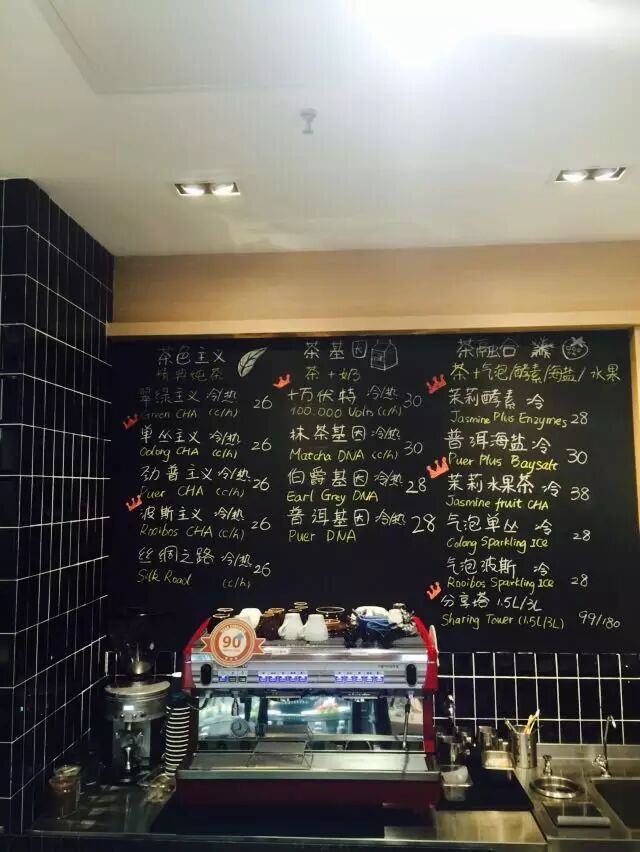 茶色主义
经典纯茶
翠绿主义 冷/热 26
Green CHA (c/h)
单丛主义 冷/热 26
Oolong CHA (c/h)
劲普主义 冷/热 26
Puer CHA (c/h)
波斯主义 冷/热 26
Rooibos CHA (c/h)
丝绸之路 冷/热 26
Silk Road (c/h)
茶基因
茶+奶
十万伏特 冷/热 30
100.000 Volts (c/h)
抹茶基因 冷/热 30
Matcha DNA (c/h)
伯爵基因 冷/热 28
Earl Grey DNA
普洱基因 冷/热 28
Puer DNA
茶融合
茶+气泡/酵素/海盐/水果
茉莉酵素 冷
Jasmine Plus Enzymes 28
普洱海盐 冷
Puer Plus Baysalt 30
茉莉水果茶 冷 38
Jasmine fruit CHA
气泡单丛 冷
Oolong Sparkling ICE 28
气泡波斯 冷
Rooibos Sparkling ICE 28
分享塔 1.5L/3L
Sharing Tower (1.5L/3L) 99/180
90